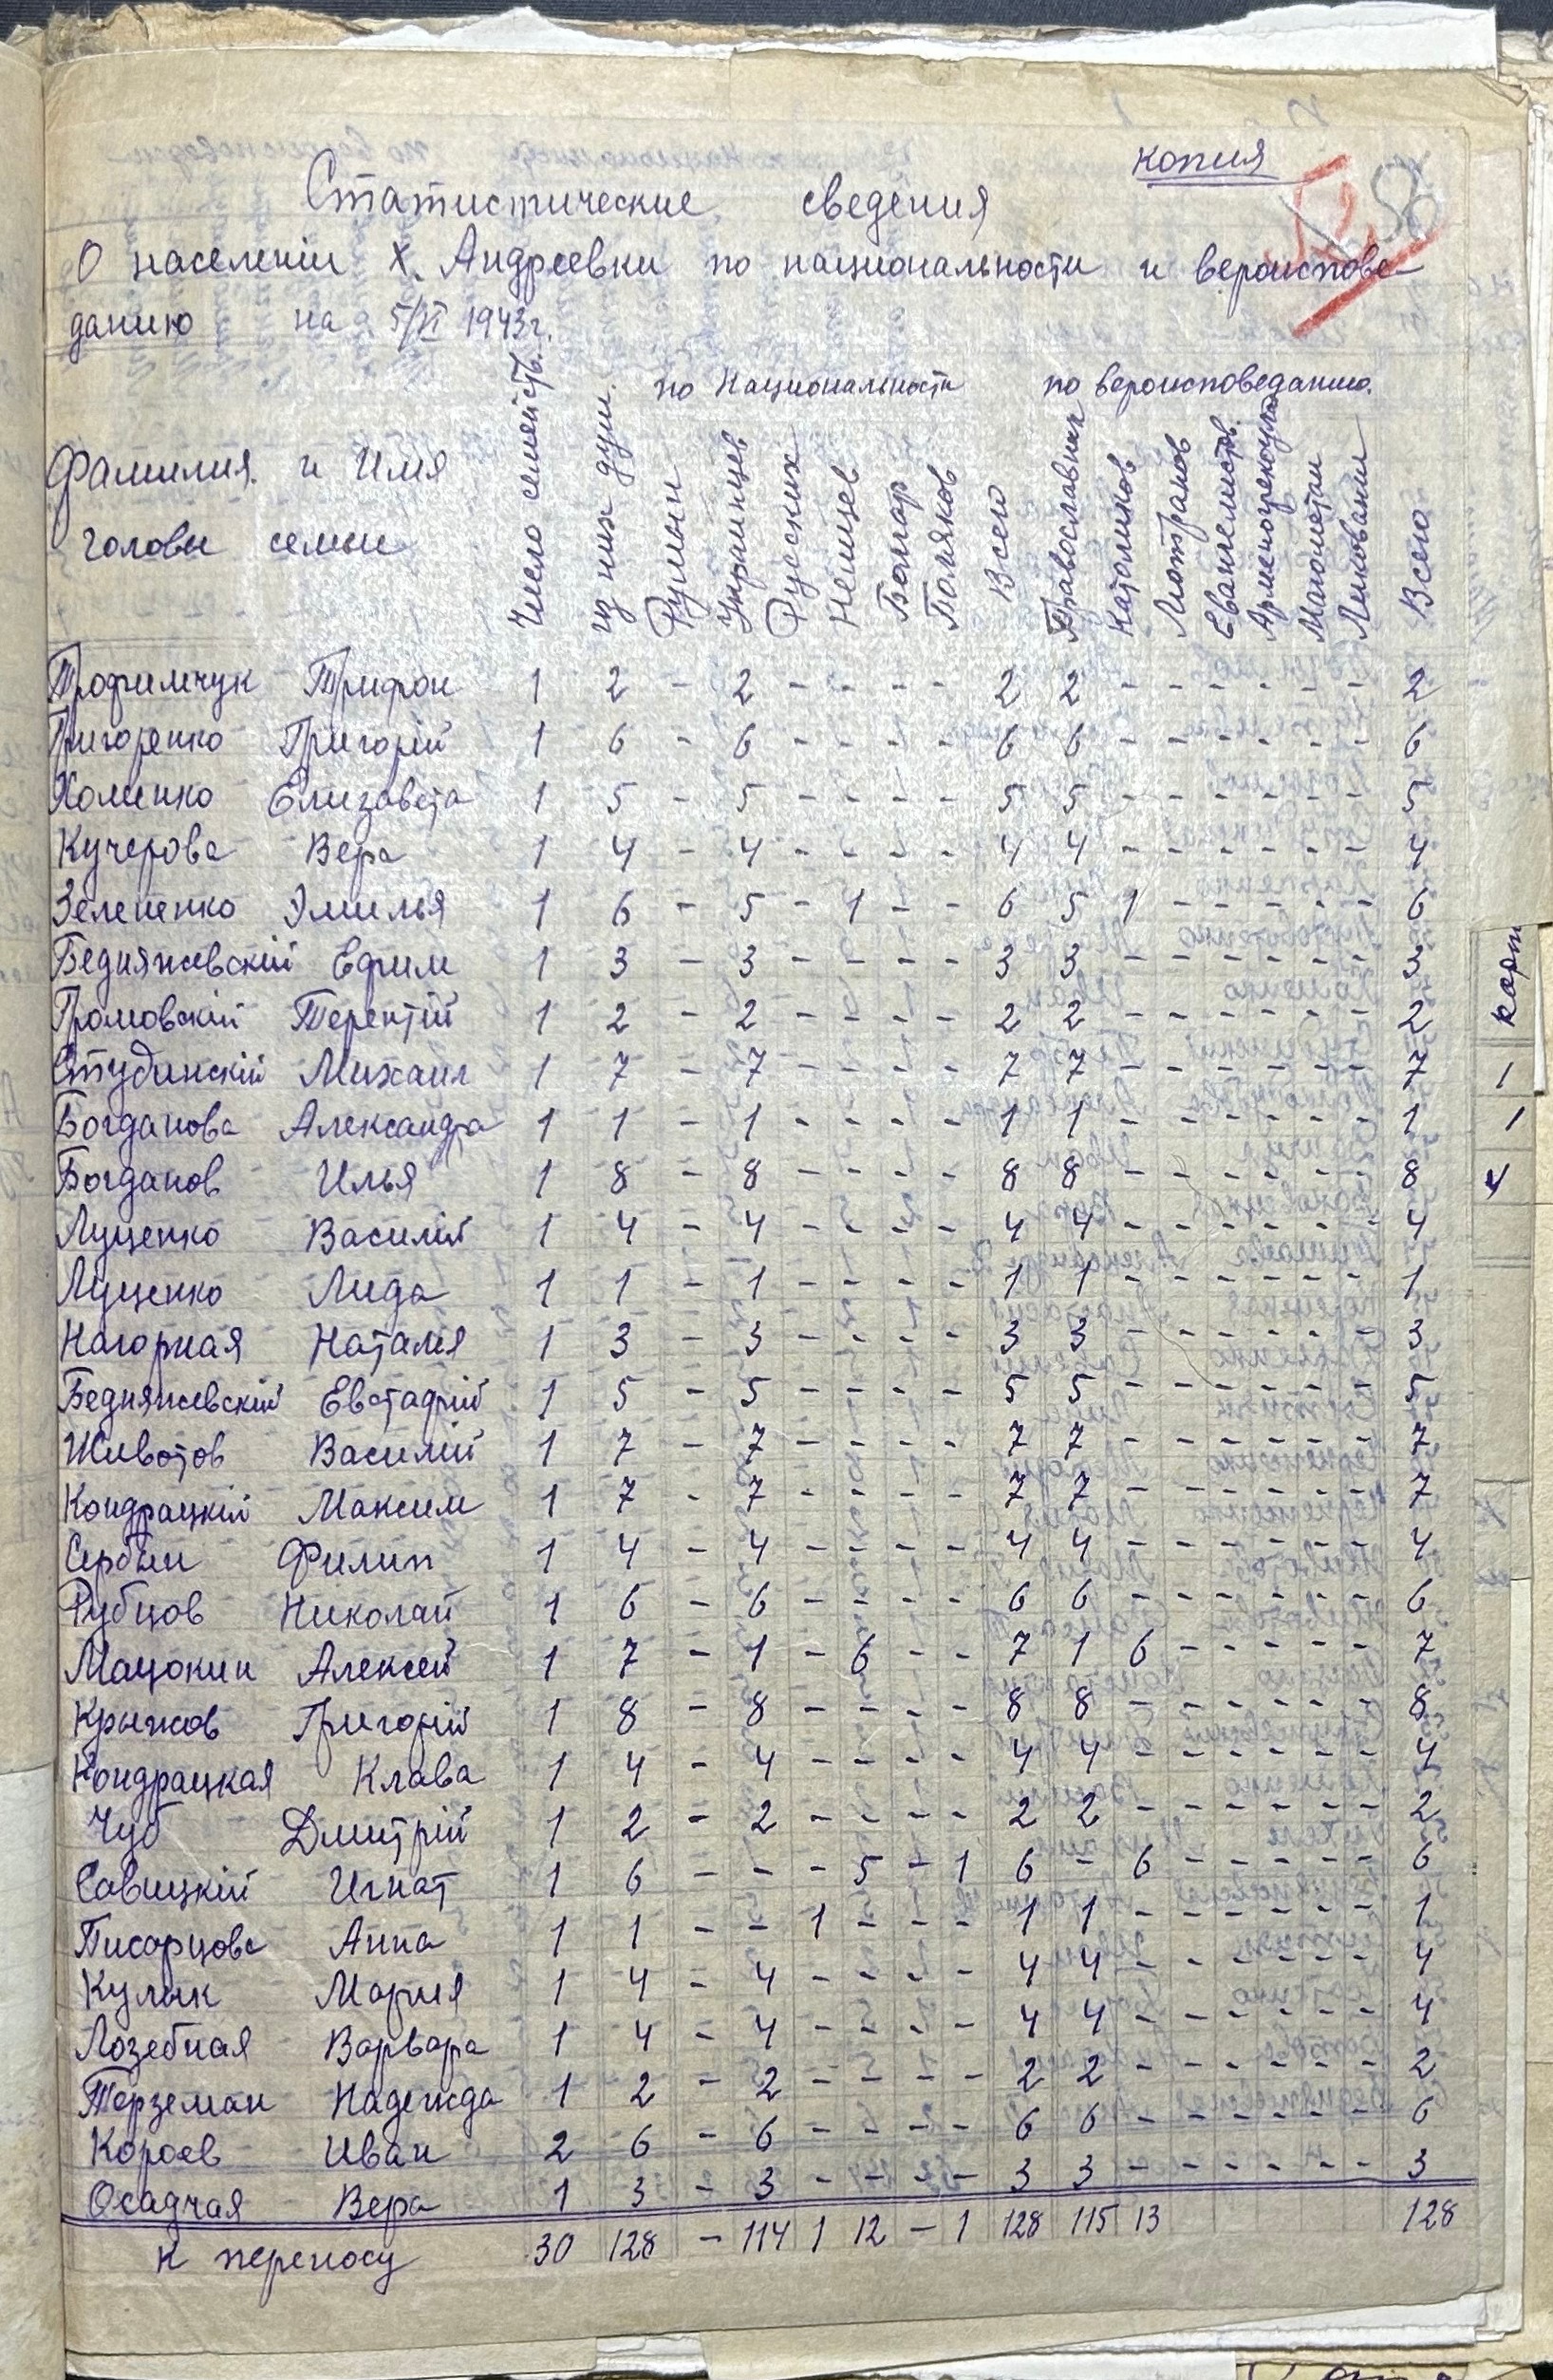 копия
58
Статистические сведения
О населеніи х. Андреевки по национальности и вероиспове-
данию на 5/VI 1943г.
по Национальности по вероисповеданию.
Фамилия и Имя
головы семьи
Число семейств.
из них душ.
Румын
Украинцев
Русских
Немцев
Болгар
Поляков
Всего
Православных
Католиков
Лютранов
Евангелистов.
Магометан
Всего
Трофимчук Трифон 1 2 - 2 - - - - 2 2 - - - - - - 2
Григоренко Григорій 1 6 - 6 - - - - 6 6 - - - - - - 6
Хоменко Елизавета 1 5 - 5 - - - - 5 5 - - - - - - 5
Кучерова Вера 1 4 - 4 - - - - 4 4 - - - - - - 4
Зелененко Эмилья 1 6 - 5 - 1 - - 6 5 1 - - - - - 6
Бедняжевскій Ефим 1 3 - 3 - - - - 3 3 - - - - - - 3
Громовскій Терентій 1 2 - 2 - - - - 2 2 - - - - - - 2
Студинскій Михаил 1 7 - 7 - - - - 7 7 - - - - - - 7
Богданова Александра 1 1 - 1 - - - - 1 1 - - - - - - 1
Богданов Илья 1 8 - 8 - - - - 8 8 - - - - - - 8
Луценко Василій 1 4 - 4 - - - - 4 4 - - - - - - 4
Луценко Лида 1 1 - 1 - - - - 1 1 - - - - - - 1
Нагорная Наталія 1 3 - 3 - - - - 3 3 - - - - - - 3
Бедняжевскій Евстафій 1 5 - 5 - - - - 5 5 - - - - - - 5
Животов Василій 1 7 - 7 - - - - 7 7 - - - - - - 7
Кондрацкій Максим 1 7 - 7 - - - - 7 7 - - - - - - 7
Сербин Филип 1 4 - 4 - - - - 4 4 - - - - - - 4
Рубцов Николай 1 6 - 6 - - - - 6 6 - - - - - - 6
Мацокин Алексей 1 7 - 1 - 6 - - 7 1 6 - - - - - 7
Крыжов Григорій 1 8 - 8 - - - - 8 8 - - - - - - 8
Кондрацкая Клава 1 4 - 4 - - - - 4 4 - - - - - - 4
Чуб Дмитрій 1 2 - 2 - - - - 2 2 - - - - - - 2
Савицкій Игнат 1 6 - - - 5 - 1 6 - 6 - - - - - 6
Писарцова Анна 1 1 - - 1 - - - 1 1 - - - - - - 1
Кулик Мария 1 4 - 4 - - - - 4 4 - - - - - - 4
Лозебная Варвара 1 4 - 4 - - - - 4 4 - - - - - - 4
Терземан Надежда 1 2 - 2 - - - - 2 2 - - - - - - 2
Короев Иван 2 6 - 6 - - - - 6 6 - - - - - - 6
Осадчая Вера 1 3 - 3 - - - - 3 3 - - - - - - 3
К переносу 30 128 - 114 1 12 - 1 128 115 13 128